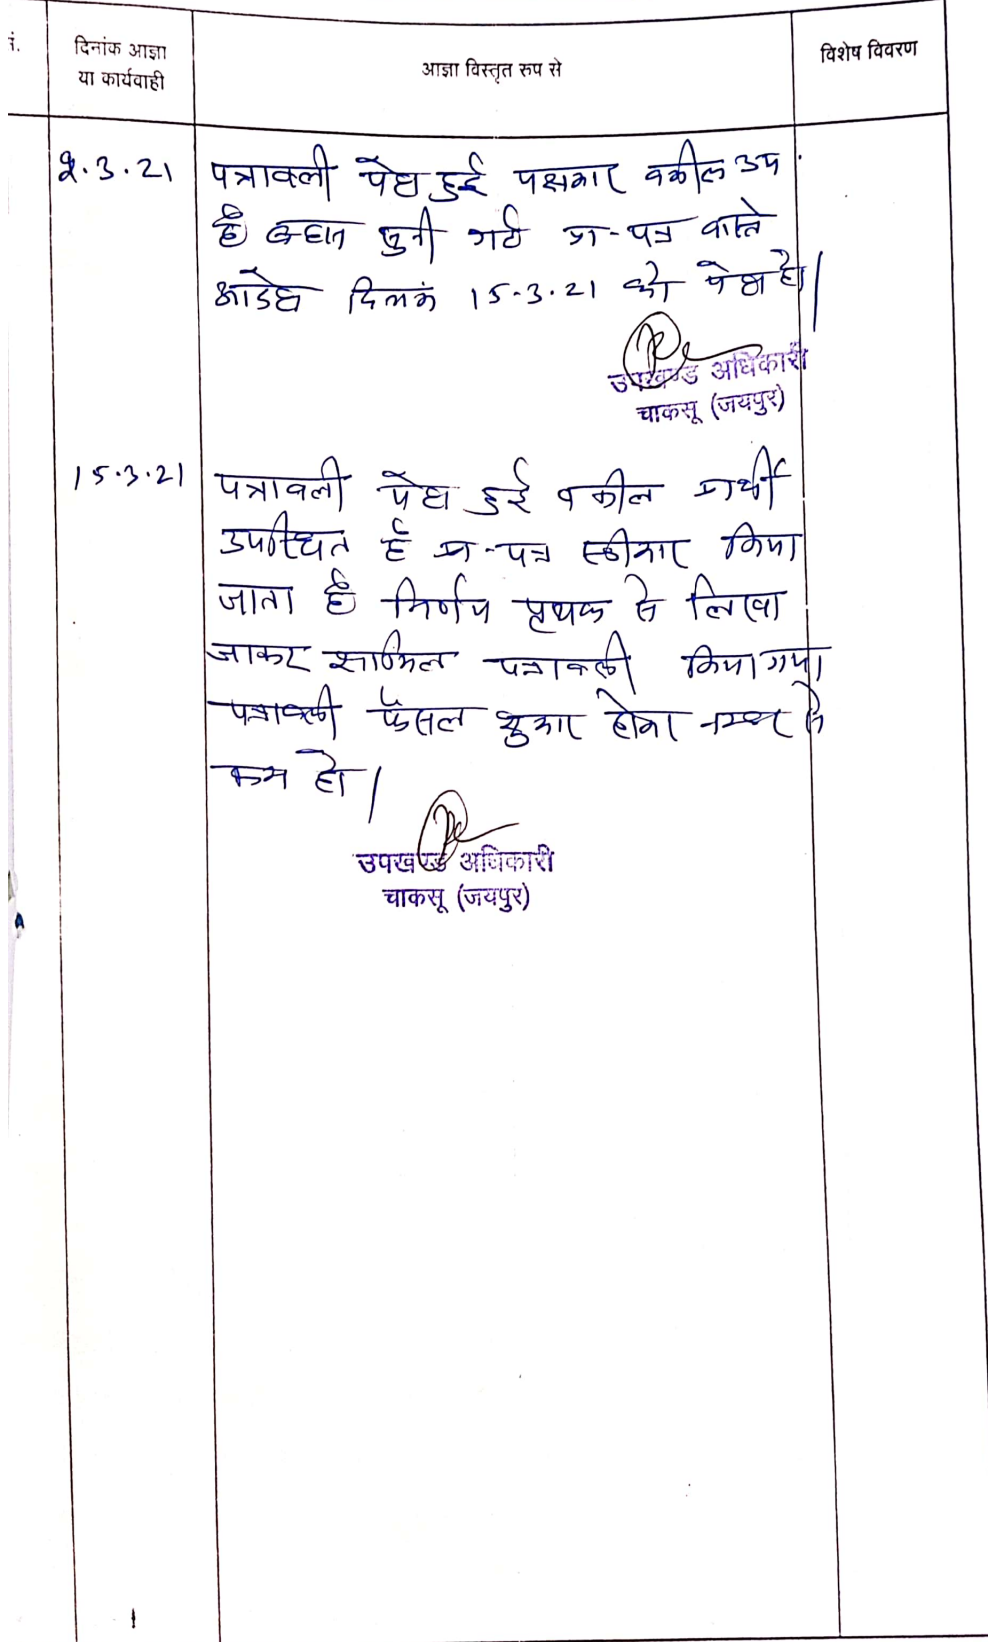 नं.
दिनांक आज्ञा
या कार्यवाही
आज्ञा विस्तृत रुप से
विशेष विवरण
2.3.21 पत्रावली पेश हुई पक्षकार वकील उप
है बहस सुनी गई प्रा-पत्र वास्ते
आदेश दिनांक 15.3.21 को पेश हो।
उपखण्ड अधिकारी
चाकसू (जयपुर)
15.3.21 पत्रावली पेश हुई वकील प्रार्थी
उपस्थित है प्रा-पत्र स्वीकार किया
जाता है निर्णय पृथक से लिखा
जाकर शामिल पत्रावली किया गया
पत्रावली फैसल शुमार होकर नम्बर से
कम हो।
उपखण्ड अधिकारी
चाकसू (जयपुर)